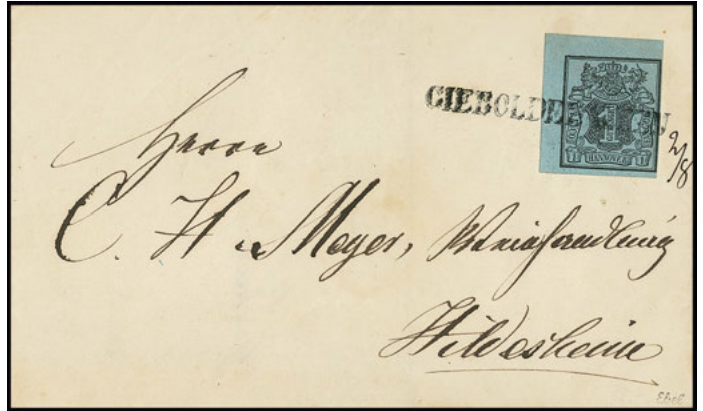 GIEBOLDEHAUSEN
1
HANNOVER
2/8
Herrn
C. H. Meyer, Weinhandlung
Hildesheim